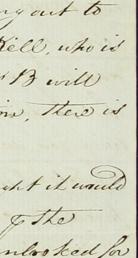 out to
Kell, who is
B will
there is
it would
the
unlooked for